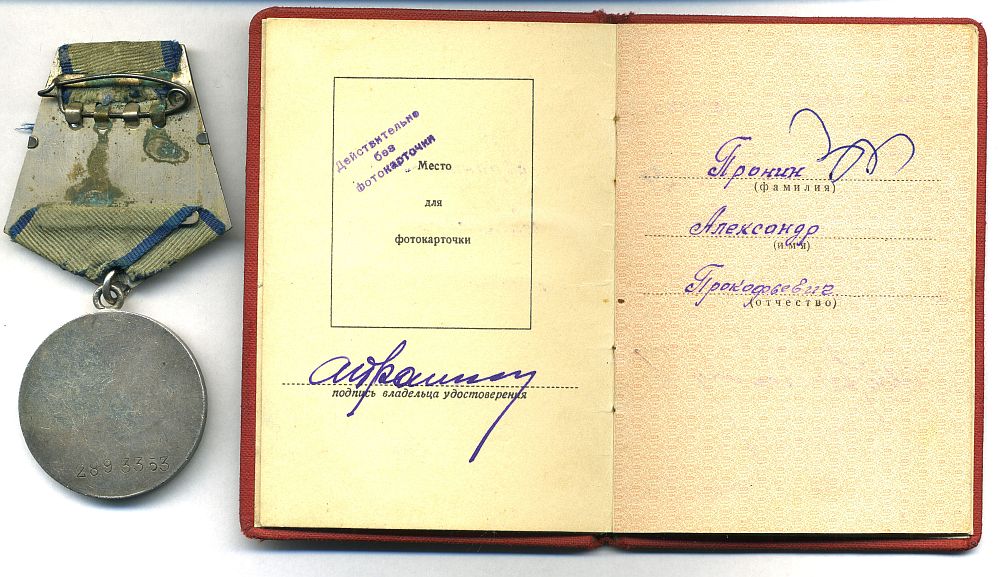 2893353
Действительно
без
фотокарточки
Место
для
фотокарточки
подпись владельца удостоверения
Пронин
(фамилия)
Александр
(имя)
Прокофьевич
(отчество)